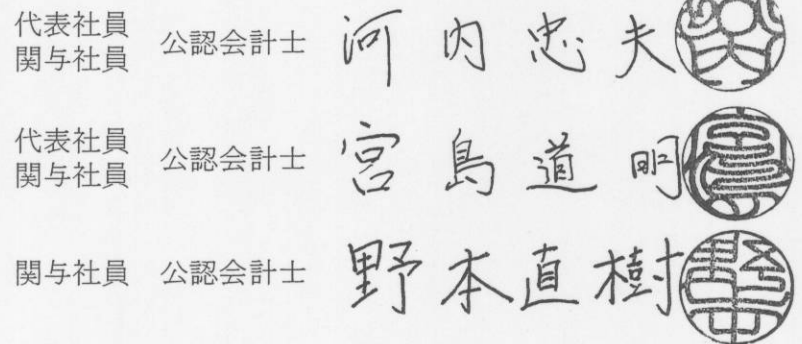 代表社員
関与社員 公認会計士 河内忠夫
代表社員
関与社員 公認会計士 宮島道明
関与社員 公認会計士 野本直樹